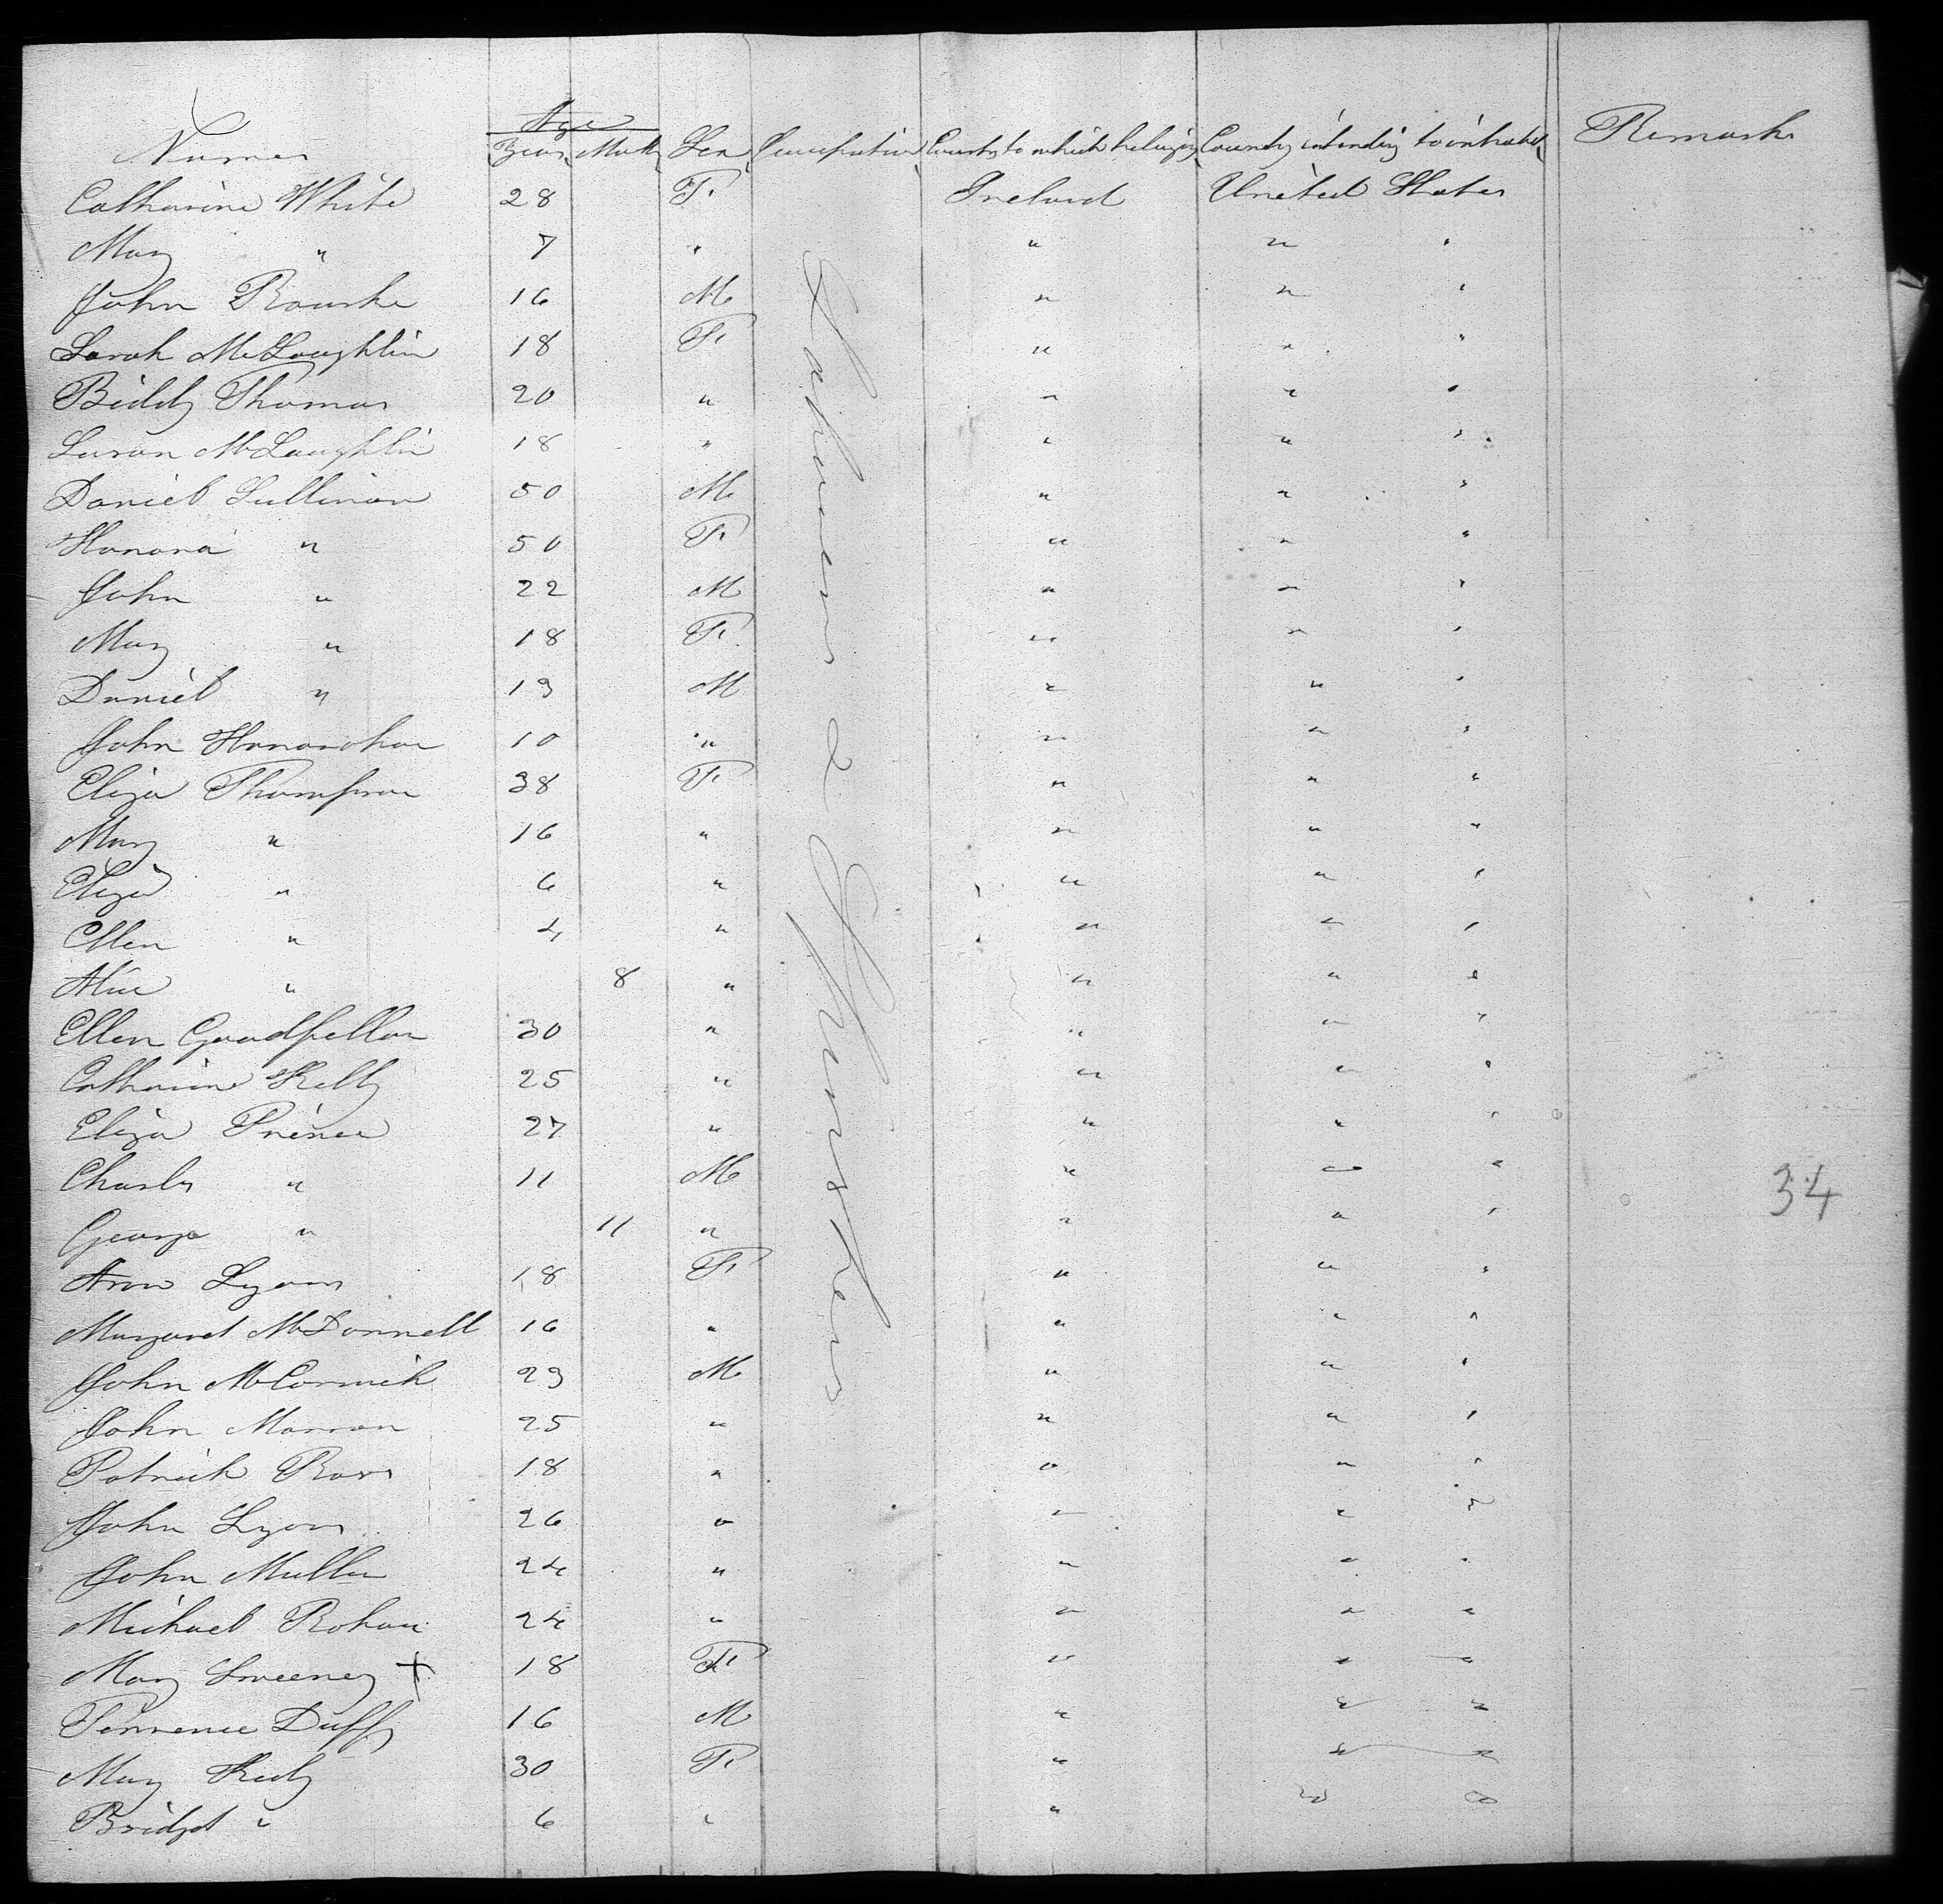 Names Age Years Month Sex Occupation Country to which belonging Country intending to inhabit Remarks
Catharine White 28 F. Ireland United States
Mary " 7 " " " "
John Rourke 16 M " " "
Sarah McLoughlin 18 F. " " "
Biddy Thomas 20 " " " "
Susan McLaughlin 18 " " " "
Daniel Sullivan 50 M. " " "
Honora " 50 F. " " "
John " 22 M " " "
Mary " 18 F. " " "
Daniel " 13 M " " "
John 10 " " " "
Eliza Thompson 38 F. " " "
Mary " 16 " " " "
Eliza " 6 " " " "
Ellen " 4 " " " "
Alice " 8 " " " "
Ellen Goodfellow 30 " " " "
Catharine Kelly 25 " " " "
Eliza Prince 27 " " " "
Charles " 11 M " " "
George " 11 " " " "
Ann Lyons 18 F. " " "
Margaret McDonnell 16 " " " "
John McCormick 23 M " " "
John Marron 25 " " " "
Patrick 18 " " " "
John Lyons 26 " " " "
John Mullen 24 " " " "
Michael Rohan 24 " " " "
Mary Sweeney + 18 F. " " "
Terrence Duffy 16 M " " "
Mary 30 F. " " "
Bridget " 6 " " " "
Labourers & Spinsters
34